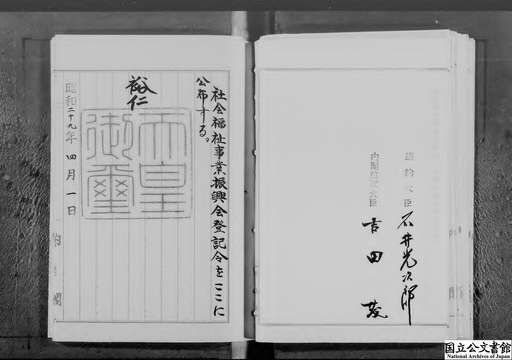 社会福祉事業振興会登記令をここに
公布する。
裕仁
天皇
御璽
昭和二十九年四月一日
内閣
内閣総理大臣
吉田茂
石井光次郎
国立公文書館
National Archives of Japan